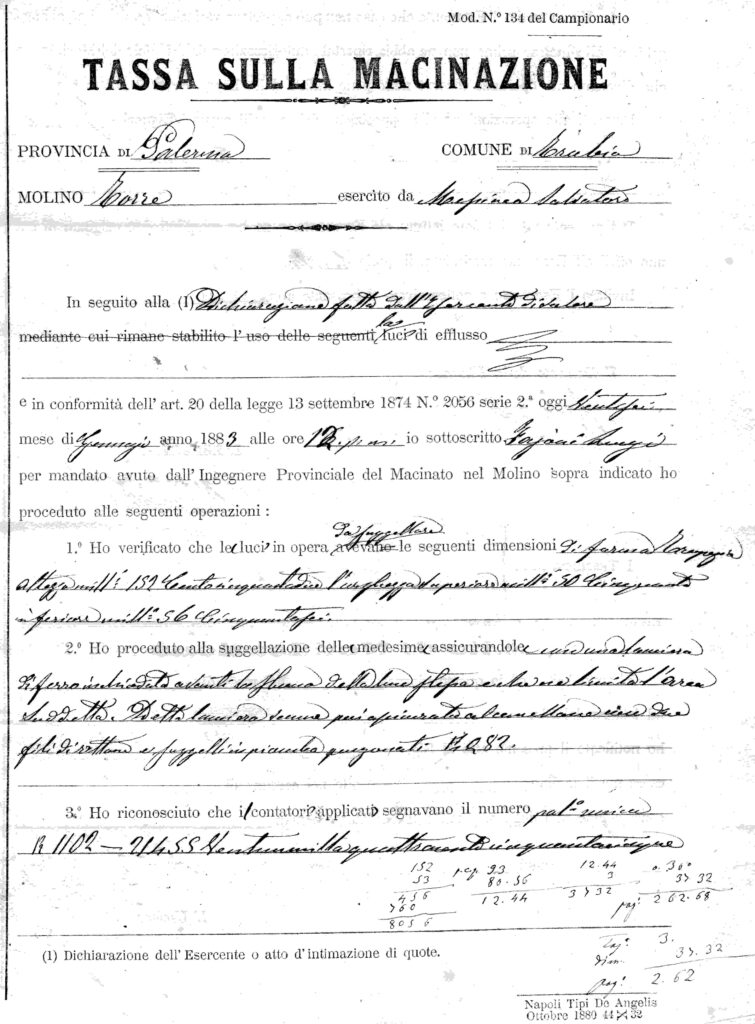 Mod. N.º 134 del Campionario
TASSA SULLA MACINAZIONE
PROVINCIA DI Palermo COMUNE DI Trabia
MOLINO Torre esercito da Salvatore
In seguito alla (I) Dichiarazione fatta dall'Esercente
mediante cui rimane stabilito l'uso delle seguenti luci di efflusso
e in conformità dell'art. 20 della legge 13 settembre 1874 N.º 2056 serie 2.ª oggi Ventisei
mese di Gennajo anno 1883 alle ore io sottoscritto Luigi
per mandato avuto dall'Ingegnere Provinciale del Macinato nel Molino sopra indicato ho
proceduto alle seguenti operazioni :
da suggellare
1.º Ho verificato che le luci in opera avevano le seguenti dimensioni di forma
altezza mill.i 152 Centocinquantadue larghezza superiore mill.i 50 Cinquanta
inferiore mill.i 56 Cinquantasei.
2.º Ho proceduto alla suggellazione delle medesime assicurandole con una lamiera
di ferro avanti la della luce stessa e che ne limita l'area
suddetta. Detta lamiera venne poi con due
fili di ottone e suggelli in piombo N. 82.
3.º Ho riconosciuto che i contatori applicati segnavano il numero
1102 — 21455 Ventunmillaquattrocentocinquantacinque
152 93 12.44
53 80.56 3 37 32
456 12.44 37 32 262.68
760
8056
3.
37.32
2.62
(1) Dichiarazione dell'Esercente o atto d'intimazione di quote.
Napoli Tipi De Angelis
Ottobre 1880 44 × 32